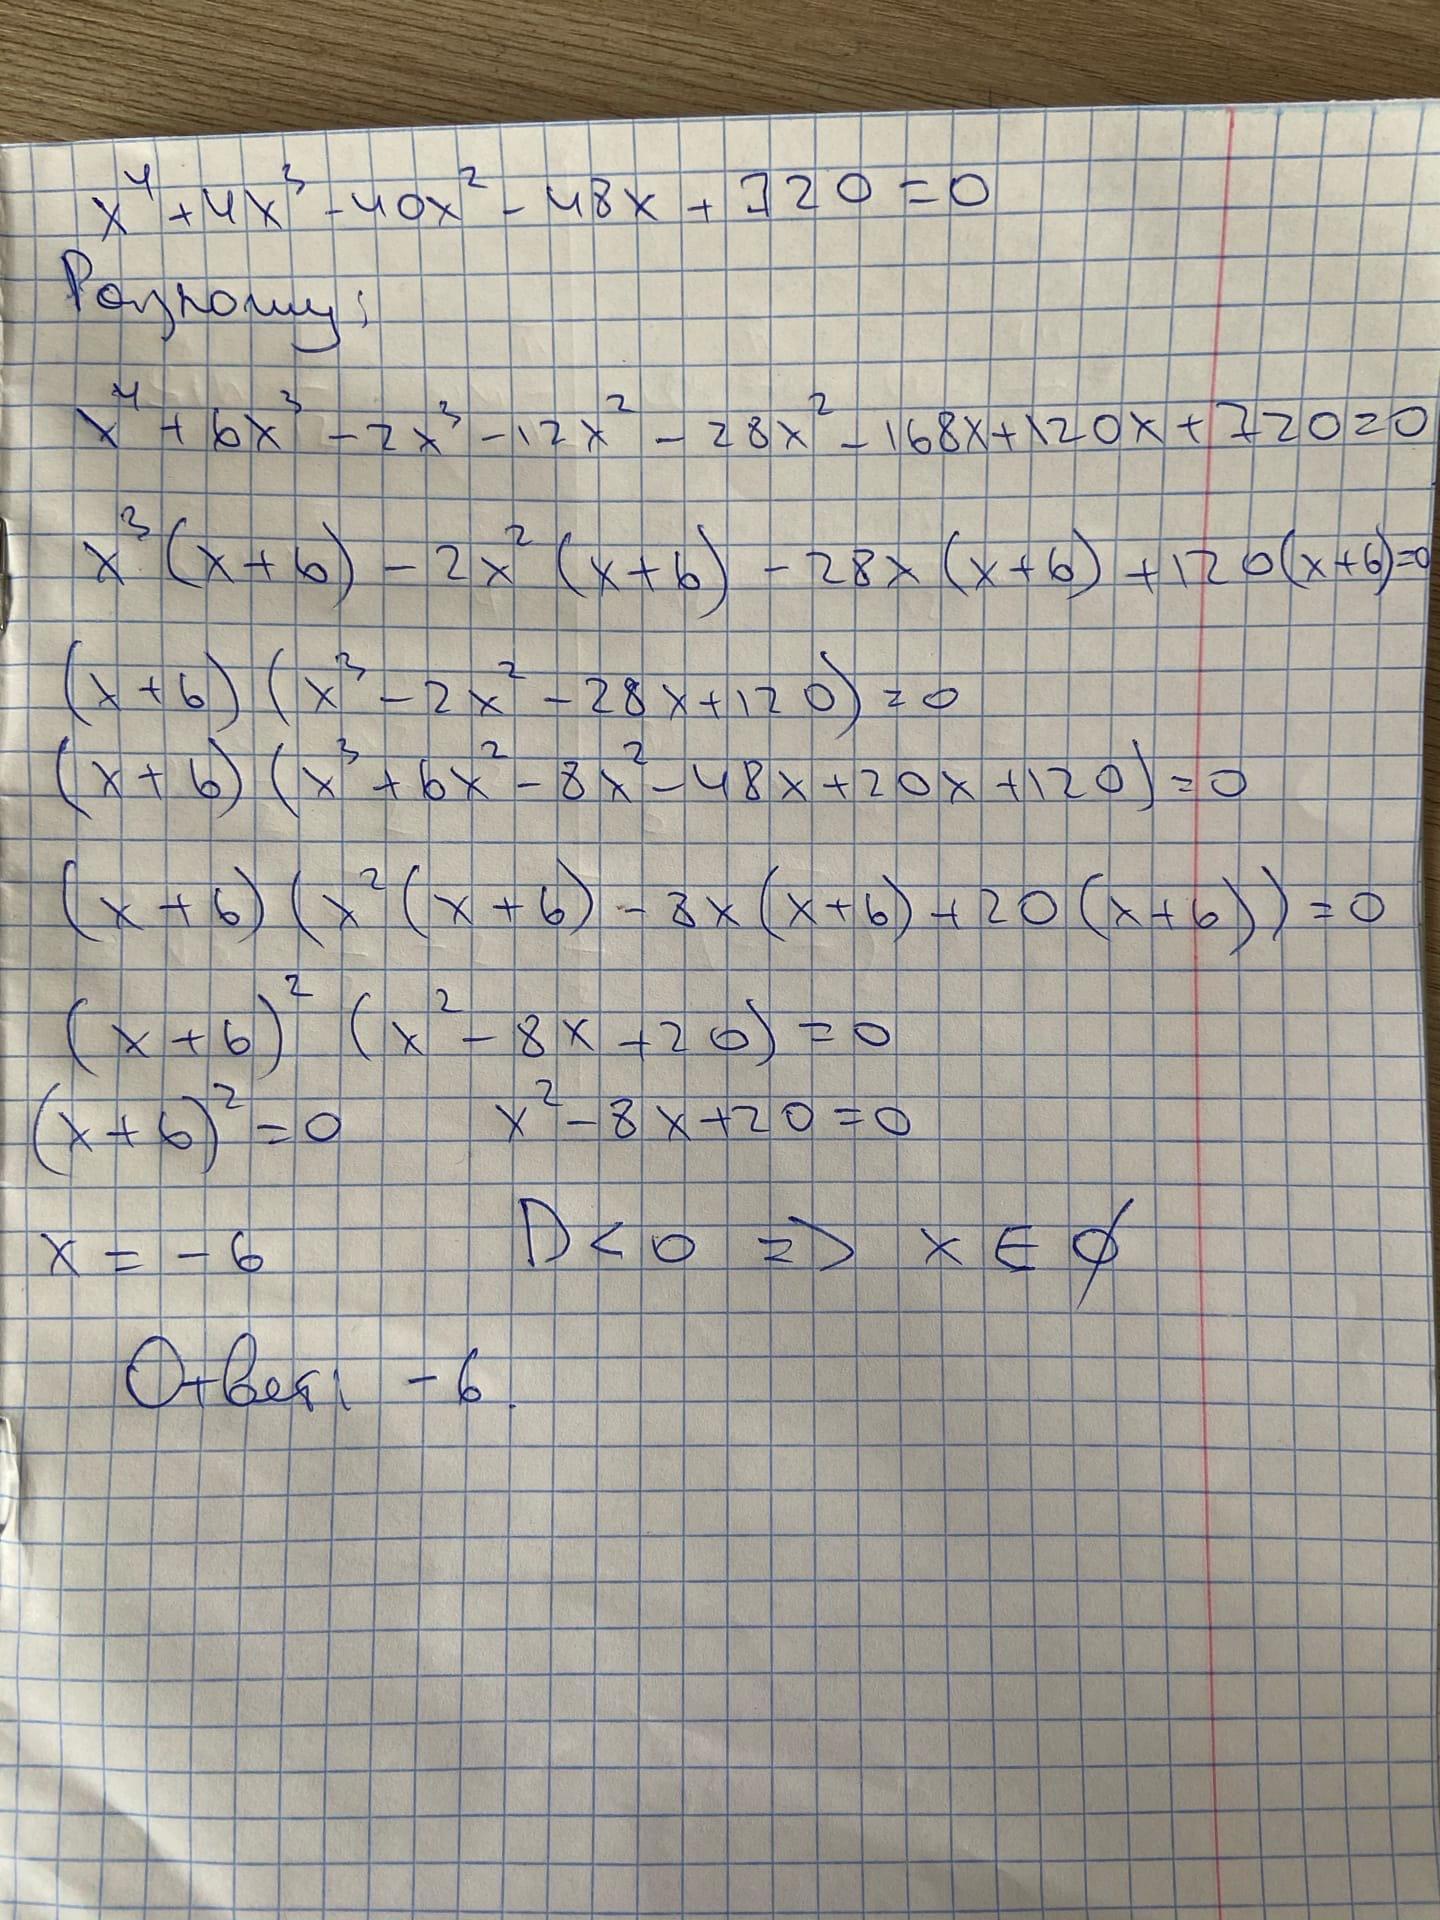 x⁴+4x³-40x²-48x+720=0
Разложу:
x⁴+6x³-2x³-12x²-28x²-168x+120x+720=0
x³(x+6)-2x²(x+6)-28x(x+6)+120(x+6)=0
(x+6)(x³-2x²-28x+120)=0
(x+6)(x³+6x²-8x²-48x+20x+120)=0
(x+6)(x²(x+6)-8x(x+6)+20(x+6))=0
(x+6)²(x²-8x+20)=0
(x+6)²=0 x²-8x+20=0
x=-6 D<0 => x∈∅
Ответ: -6.